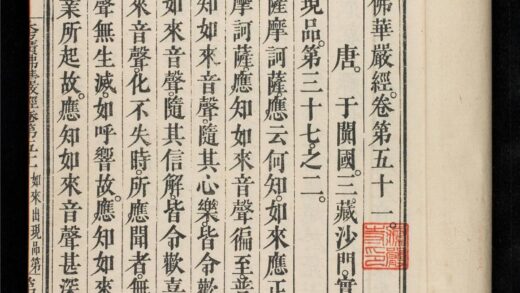 佛華嚴經。卷第五十一。
唐。于闐國。三藏沙門。實
現品。第三十七之二。
薩摩訶薩。應云何知。如來。應正
摩訶薩。應知如來音聲徧至。普
知如來音聲。隨其心樂。皆令歡
如來音聲。隨其信解。皆令歡喜
音聲。化不失時。所應聞者。無
聲無生滅。如呼響故。應知如來
業所起故。應知如來音聲甚深
華嚴經卷第五十一 如來出現品第